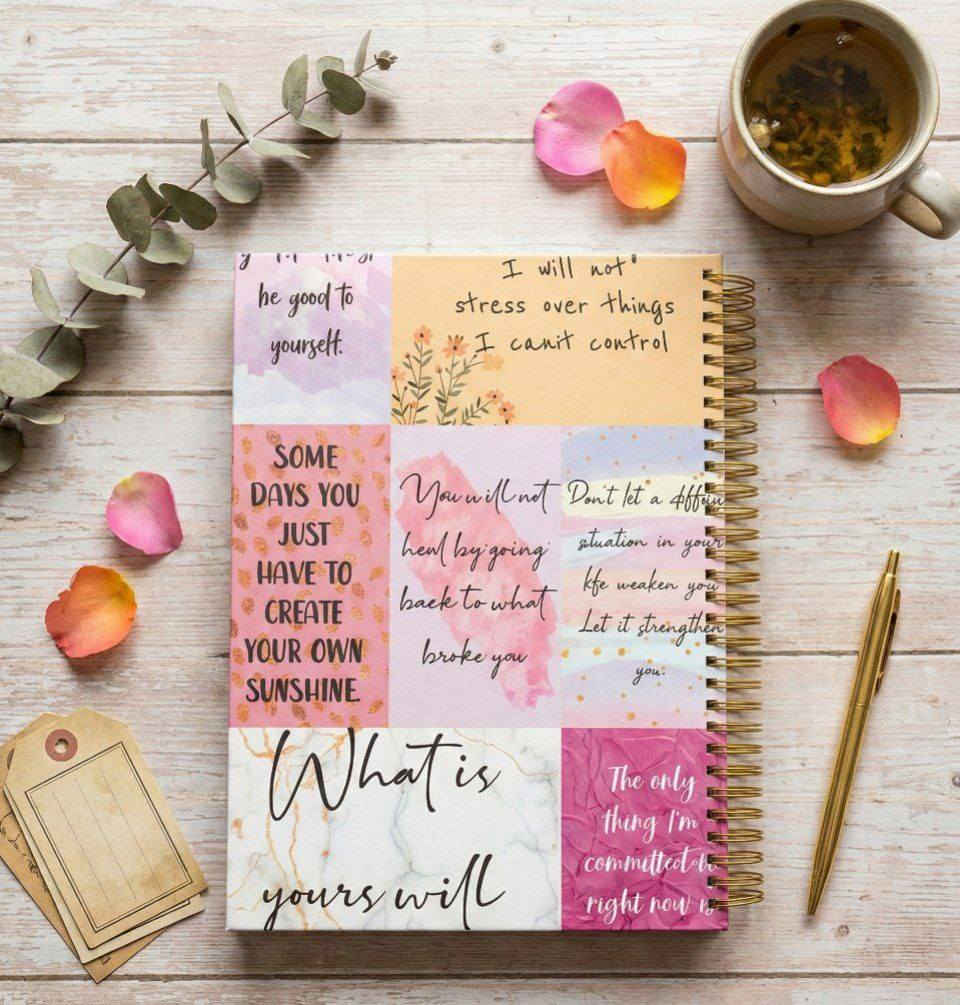 be good to
yourself.
I will not
stress over things
I canit control
SOME
DAYS YOU
JUST
HAVE TO
CREATE
YOUR OWN
SUNSHINE.
You will not
hewl by going
baek to what
broke you
Don't let a
situation in your
kfe weaken you
Let it strengthen
you.
What is
yours will
The only
thing I'm
committed
right now is